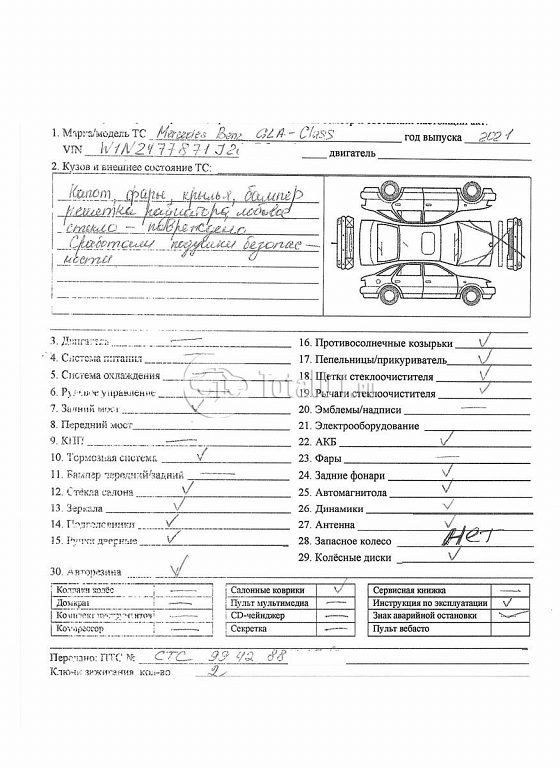 1. Марка/модель ТС Mercedes Benz GLA-Class год выпуска 2021
VIN W1N2477871J2 двигатель
2. Кузов и внешнее состояние ТС:
Капот, фары, крылья, бампер
решетка радиатора, лобовое
стекло – повреждено
Сработали подушки безопас-
ности
3. Двигатель —
4. Система питания —
5. Система охлаждения
6. Рулевое управление
7. Задний мост ✓
8. Передний мост
9. КПП —
10. Тормозная система ✓
11. Бампер передний/задний —
12. Стёкла салона ✓
13. Зеркала ✓
14. Подголовники ✓
15. Ручки дверные ✓
16. Противосолнечные козырьки ✓
17. Пепельницы/прикуриватель ✓
18. Щетки стеклоочистителя ✓
19. Рычаги стеклоочистителя ✓
20. Эмблемы/надписи —
21. Электрооборудование
22. АКБ ✓
23. Фары —
24. Задние фонари ✓
25. Автомагнитола ✓
26. Динамики ✓
27. Антенна ✓
28. Запасное колесо НЕТ
29. Колёсные диски ✓
30. Авторезина ✓
Колпаки колёс —
Домкрат —
Комплект инструментов —
Компрессор —
Салонные коврики ✓
Пульт мультимедиа —
CD-чейнджер —
Секретка —
Сервисная книжка —
Инструкция по эксплуатации ✓
Знак аварийной остановки ✓
Пульт вебасто
Передано: ПТС № СТС 99 42 88
Ключи зажигания кол-во 2